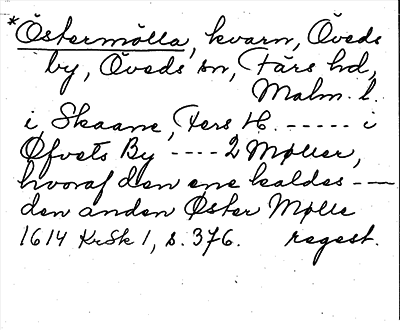 *Östermölla, kvarn, Öveds
by, Öveds sn, Färs hd,
Malm. l.
i Skaane, Fers H. ----- i
Øfvets By ---- 2 Møller,
hvoraf den ene kaldes ---
den anden Øster Mølle
1614 KrSk 1, s. 376. regest.